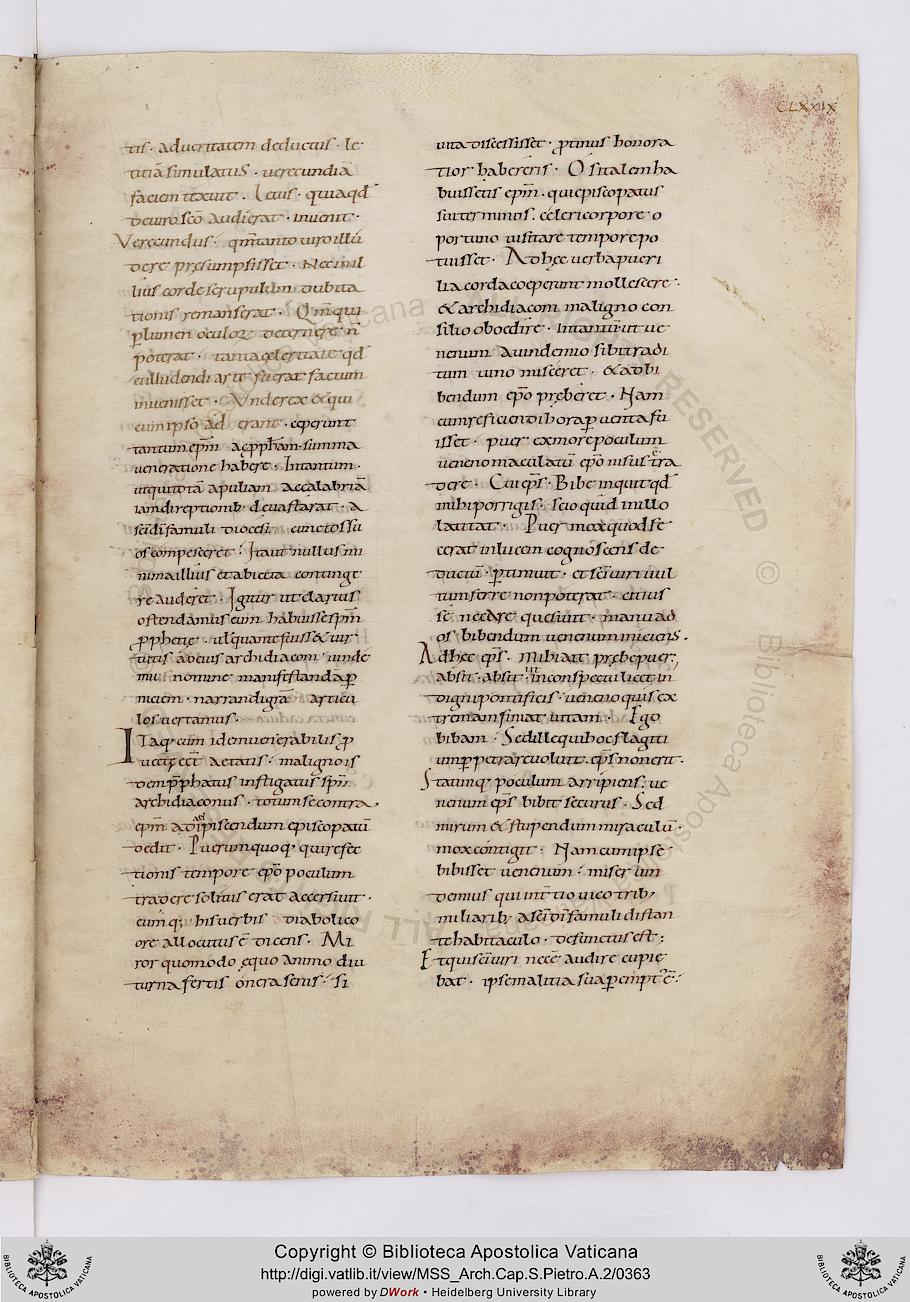 CLXXIX
tis · ad veritatem deductus · le
titiā simulatus · verecundiā
faciem texuit · Letus · quia qđ
de viro sc̄o audierat · invenit ·
Verecundus · qm̄ tanto viro illu
dere presumpsisset · Nec in il
lius corde scrupulum dubita
tionis remanserat · Qm̄ qui
p lumen oculoꝝ decernere n̄
poterat · tanta celeritate qđ
eū lludendi arte fuerat factum
invenisset · Unde rex & qui
cum ipso ad erant · ceperunt
tantum ep̄m ac p̄phām · summa
veneratione habere · In tantum ·
ut qui totā apuliam ac calabriā
iam direptionib devastarat · a
sc̄i dī famuli diocesi · cunctos su
os compesceret · Ita ut nullus mi
nima illius et abiecta continge
re auderet · Igitur ut clarius
ostendamus eum habuisse sp̄m
p̄phetie · vel quante fuisset vir
tutis ad eius archidiaconi · unde
mu nomine manifestandā p
niciem · narrandi grā · articu
los vertamus ·
Itaq cum idem venerabilis p
vecte eēt aetatis · maligno is
dem p̄phatus instigatus sp̄u
archidiaconus · totum se contra ·
ep̄m ad ipiscendum episcopatū
dedit · Puerumquoq · qui refec
tionis tempore ep̄o poculum
tradere solitus erat accersivit ·
eumq; his verbis · diabolico
ore allocutus ē dicens · Mi
ror quomodo equo animo diu
turna fertis onera senis · si
vita discessisset · protinus honora
tior haberetis · O si talem ha
buissetis ep̄m · qui episcopatus
sui terminos · celeri corpore o
portuno visitare tempore po
tuisset · Ad hec verba pueri
lia corda coeperunt mollescere ·
& archidiaconi maligno con
silio oboedire · In tantū ut ve
nenum avindemio sibi tradi
tum vino misceret · & ad bi
bendum ep̄o preberet · Nam
cum reficiendi hora p venta fu
isset · puer ex more poculum
veneno maculatū ep̄o nisus tra
dere · Cui ep̄s · Bibe inquit qđ
mihi porrigis · scio quid in illo
latitat · Puer mox quod fe
cerat in lucem cognoscens de
ductū · pertimuit · et sc̄i viri vul
tum ferre non poterat · citius
se necare quesiuit · manu ad
os bibendum venenum iniciens ·
Ad hec ep̄s · Mihi ait prebe puer;
absit · absit · ut in conspectu licet in
digni pontificis · veneno quis ex
tremam finiat vitam · Ego
bibam · Sed ille qui hoc flagiti
um perpetrare voluit · ep̄s non erit ·
Statimq; poculum arripiens · ve
nenum ep̄s bibit securus · Sed
mirum & stupendum miraculū ·
mox contigit · Nam cum ipse
bibisset venenum · miser vin
demius qui int̄ tio vico trib;
miliarib; a sc̄i dī famuli distan
te habitaculo · defunctus est;
Et qui sc̄i viri nece audire cupie
bat · ipse malitia sua pemptꝰ ē ·
Copyright © Biblioteca Apostolica Vaticana
http://digi.vatlib.it/view/MSS_Arch.Cap.S.Pietro.A.2/0363
powered by DWork • Heidelberg University Library